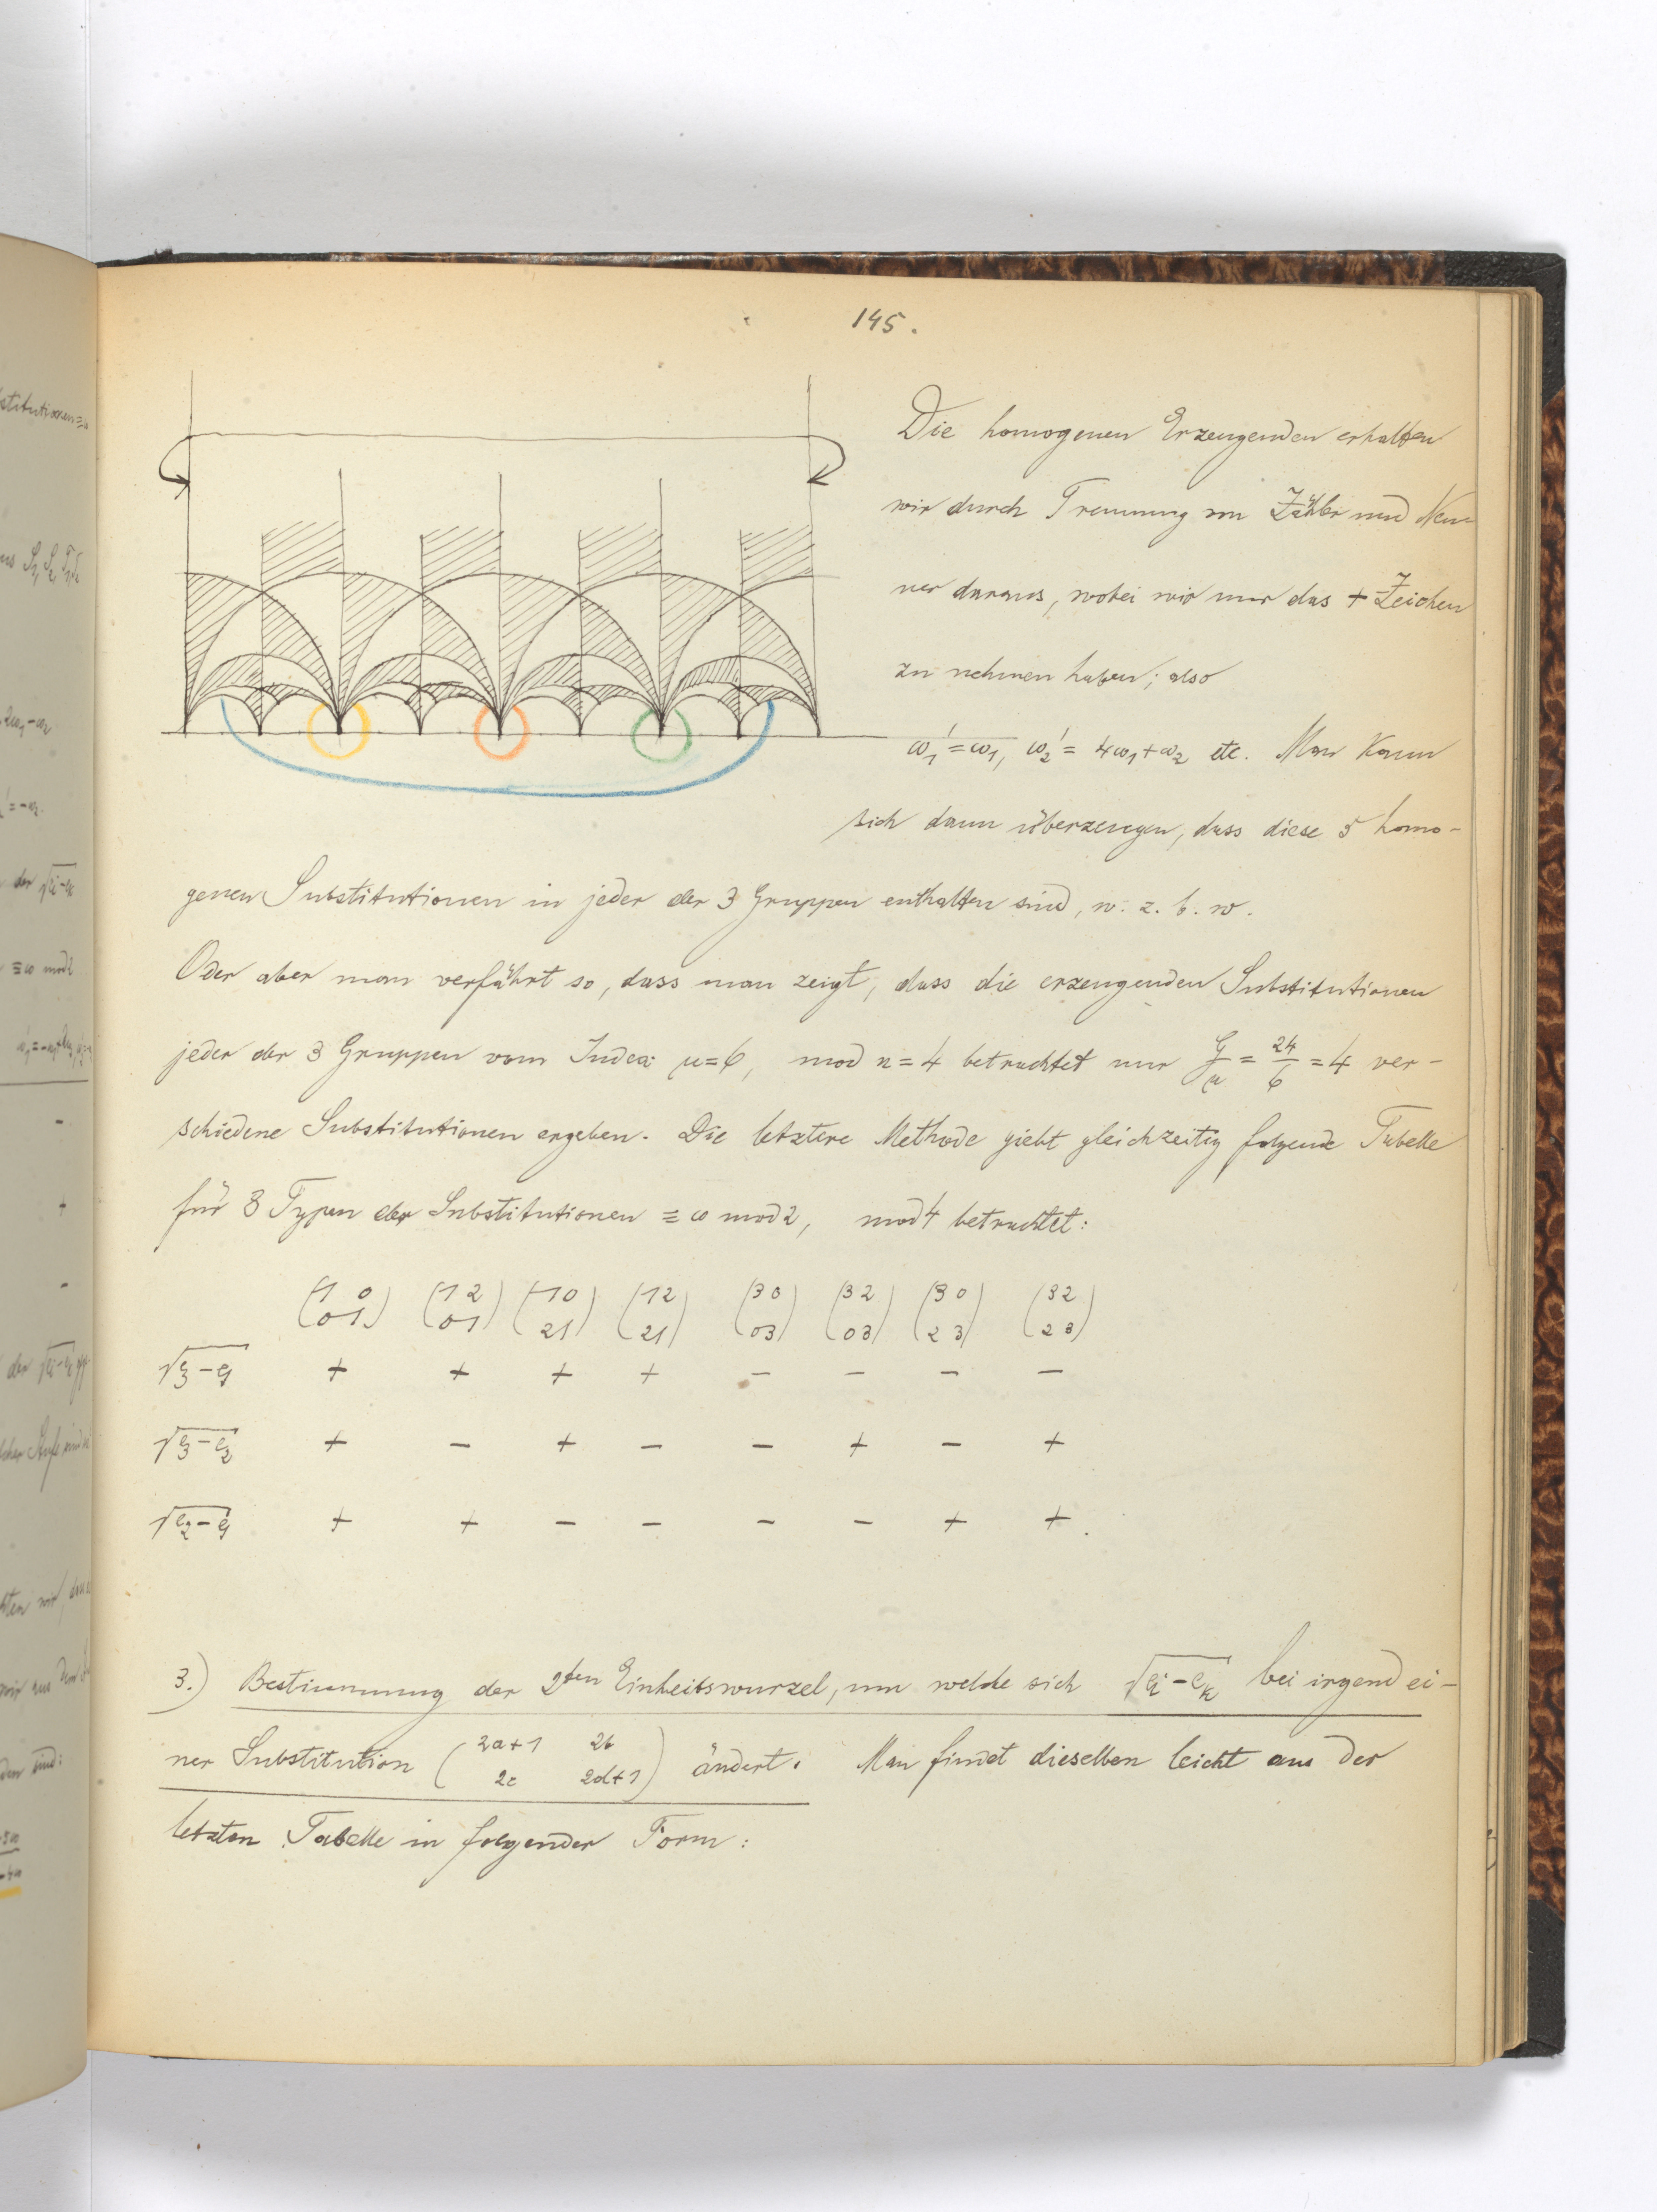 145.
Die homogenen Erzeugenden erhalten
wir durch Trennung von Zähler und Nen-
ner daraus, wobei wir nur das + Zeichen
zu nehmen haben; also
ω₁' = ω₁, ω₂' = 4ω₁+ω₂ etc. Man kann
sich dann überzeugen, dass diese 5 homo-
genen Substitutionen in jeder der 3 Gruppen enthalten sind, w. z. b. w.
Oder aber man verfährt so, dass man zeigt, dass die erzeugenden Substitutionen
jeder der 3 Gruppen vom Index μ=6, mod n=4 betrachtet nur G/μ = 24/6 = 4 ver-
schiedene Substitutionen ergeben. Die letztere Methode giebt gleichzeitig folgende Tabelle
für 8 Typen der Substitutionen ≡ ω mod 2, mod 4 betrachtet:
(1 0 / 0 1) (1 2 / 0 1) (1 0 / 2 1) (1 2 / 2 1) (3 0 / 0 3) (3 2 / 0 3) (3 0 / 2 3) (3 2 / 2 3)
√e₃-e₁ + + + + - - - -
√e₃-e₂ + - + - - + - +
√e₂-e₁ + + - - - - + + .
3.) Bestimmung der 2ten Einheitswurzel, um welche sich √eᵢ-eₖ bei irgend ei-
ner Substitution (2a+1 2b / 2c 2d+1) ändert. Man findet dieselben leicht aus der
letzten Tabelle in folgender Form: